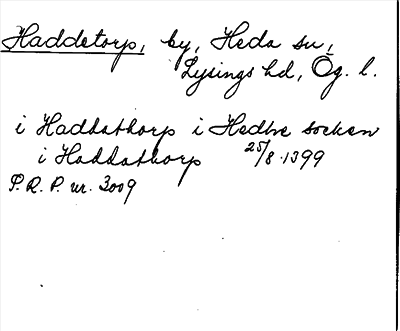 Haddetorp, by, Heda sn,
Lysings hd, Ög. l.
i Haddathorp i Hedhe socken
i Haddathorp 25/8 1399
S.R.P. nr. 3009